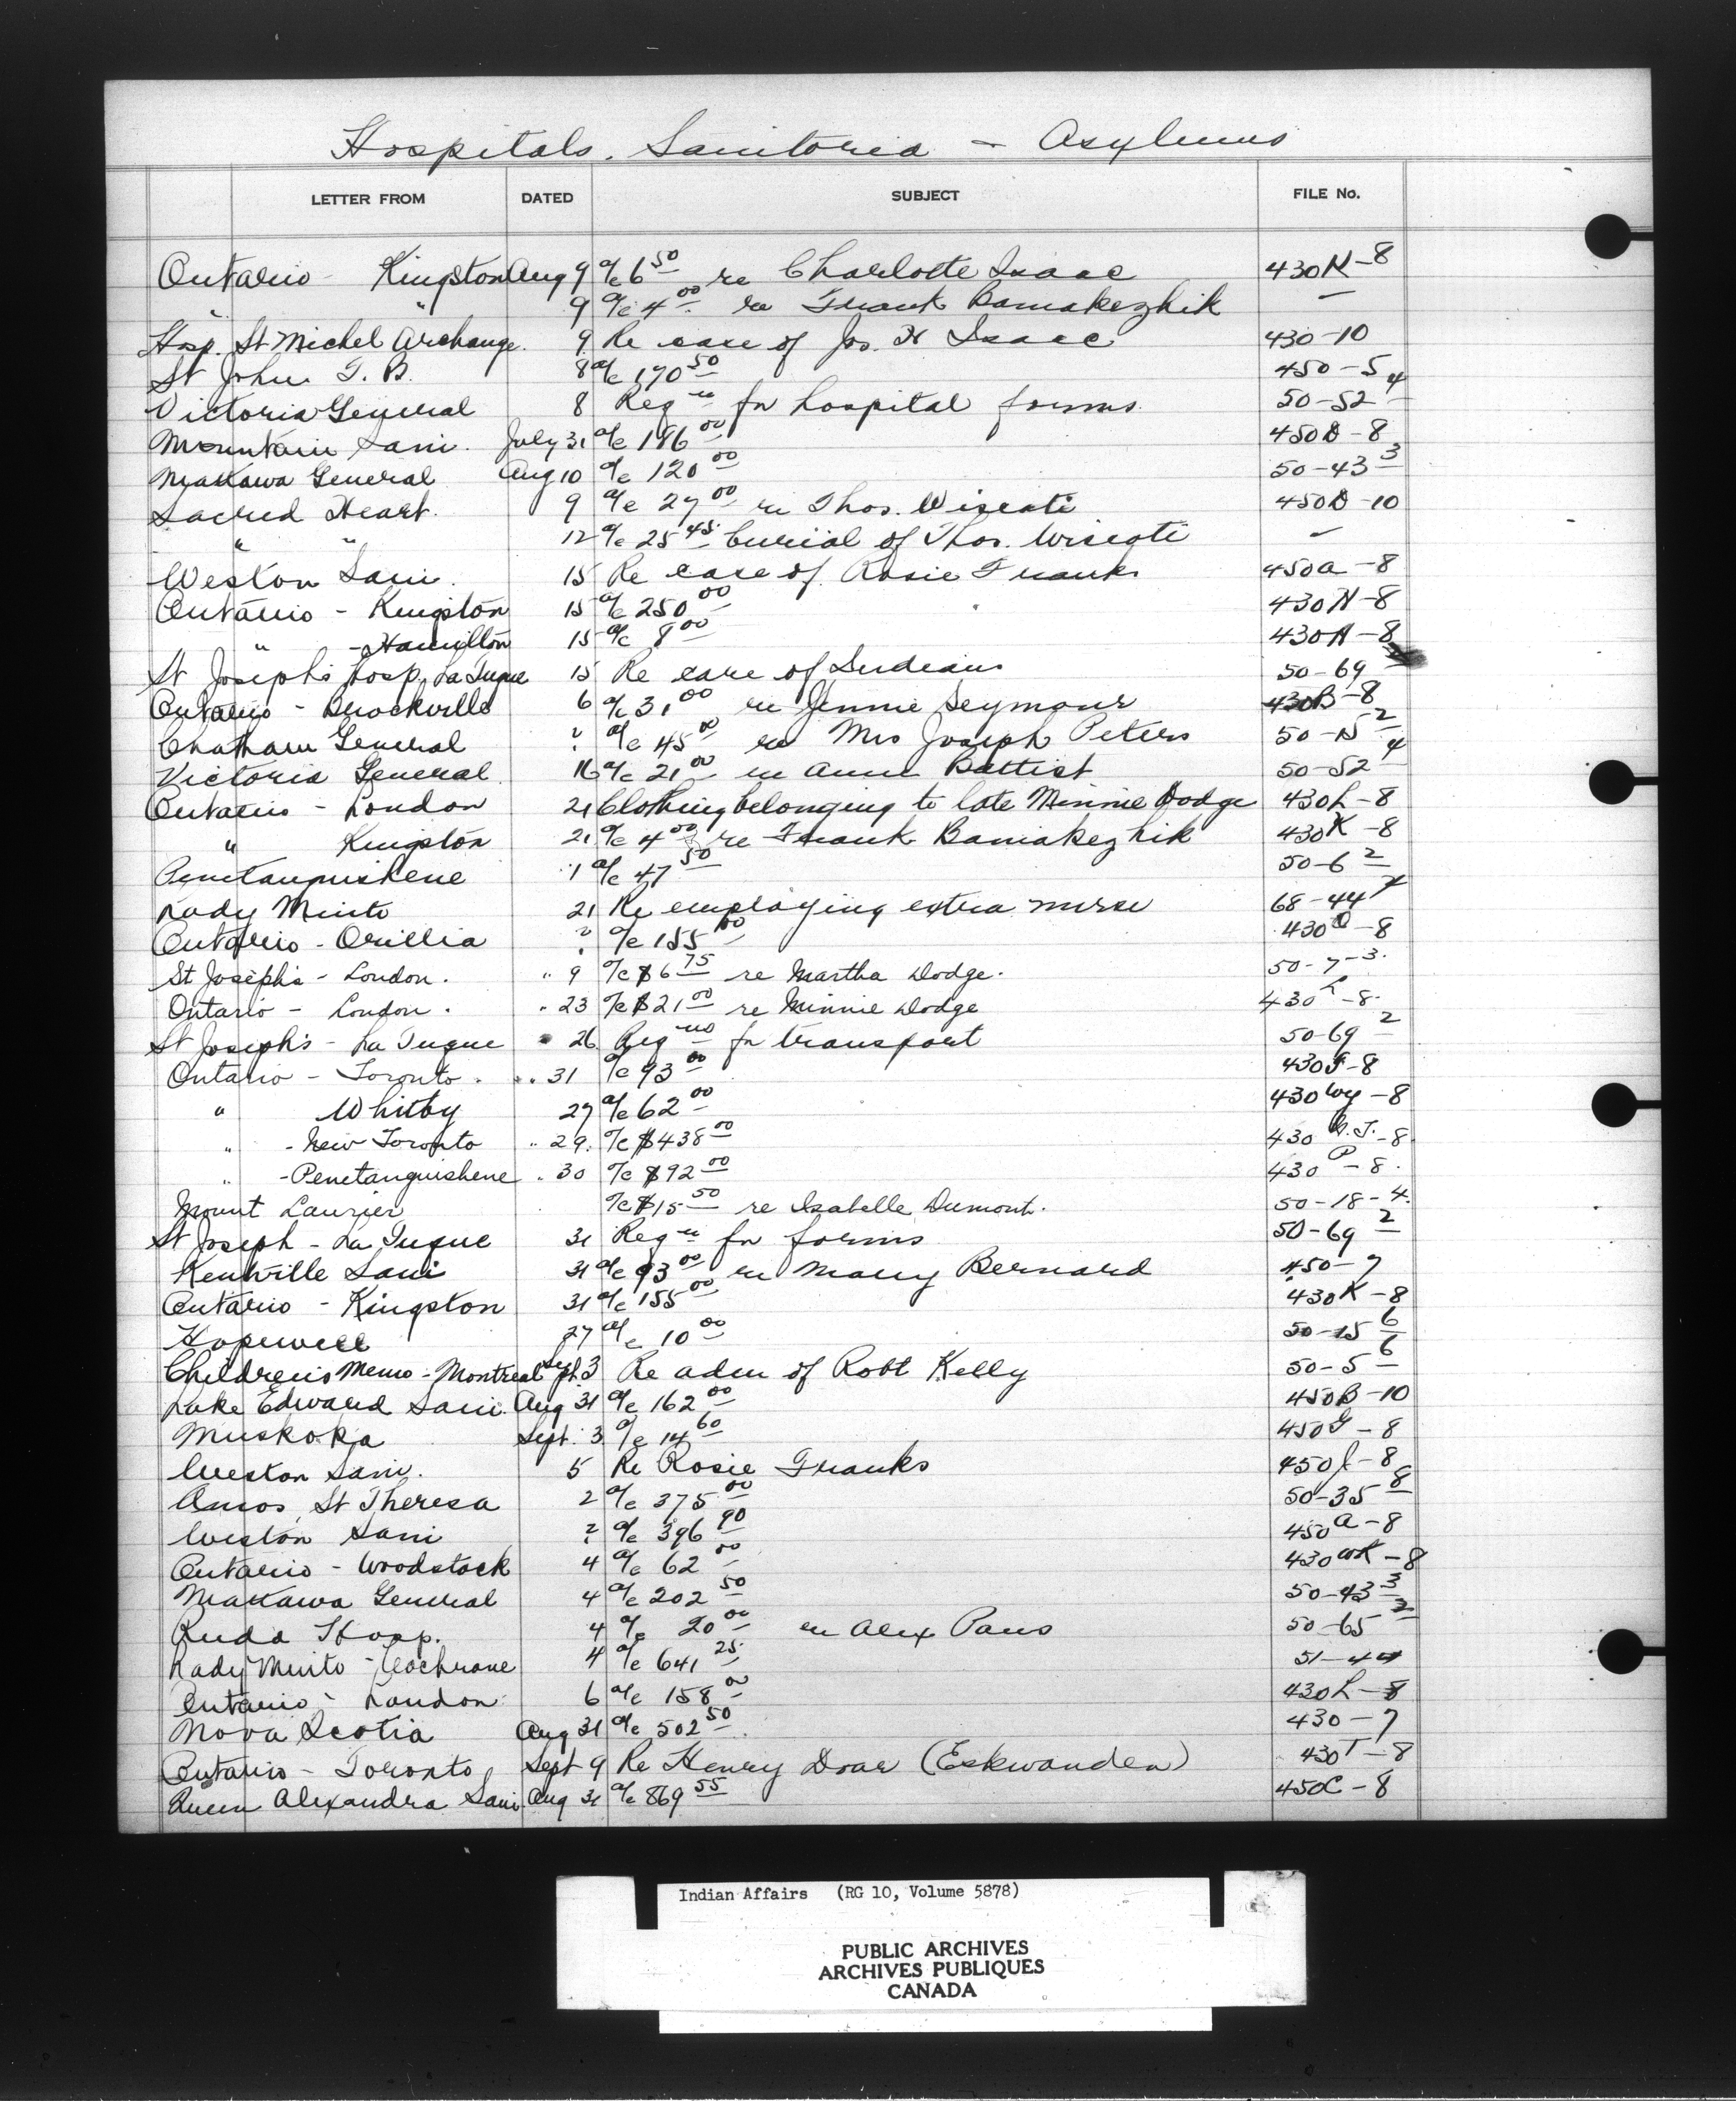 Hospitals, Sanitoria - Asylums
LETTER FROM DATED SUBJECT FILE No.
Ontario - Kingston Aug 9 a/c 6 50 re Charlotte Isaac 430K-8
" " 9 a/c 4 00 re Frank Bamakezhik -
Hosp. St Michel Archange. 9 Re case of Jos. H Isaac 430-10
St John T. B. 8 a/c 170 50 450-5
Victoria General 8 Reqn for hospital forms. 50-52 4
Mountain Sani. July 31 a/c 186 00 450D-8
General Aug 10 a/c 120 00 50-43 3
Sacred Heart. 9 a/c 27 00 re Thos. Wiscoti 450D-10
" " 12 a/c 25 45 burial of Thos. Wiscoti -
Weston Sani. 15 Re case of Rosie Franks 450a-8
Ontario - Kingston 15 a/c 250 00 430 -8
" - Hamilton 15 a/c 8 00 430H-8
St Joseph's Hosp, La Tuque 15 Re care of Indians 50-69
Ontario - Brockville 6 a/c 31 00 re Jennie Seymour 430B-8
Chatham General ? a/c 45 00 re Mrs Joseph Peters 50-N 2
Victoria General 16 a/c 21 00 re Battist 50-52 4
Ontario - London 21 Clothing belonging to late Minnie Dodge 430L-8
" Kingston 21 a/c 4 00 re Frank Bamakezhik 430K-8
Penetanguishene 1 a/c 47 50 50-6 2
Lady Minto 21 Re employing extra nurse 68-44
Ontario - Orillia ? a/c 155 00 430 O-8
St Joseph's - London. " 9 a/c $6 75 re Martha Dodge. 50-7-3.
Ontario - London. " 23 a/c $21 00 re Minnie Dodge 430 L-8.
St Joseph's - La Tuque " 26 Reqns for transport 50-69 2
Ontario - Toronto. " 31 a/c 93 00 430T-8
" Whitby 27 a/c 62 00 430 Wy-8
" - New Toronto " 29. a/c $438 00 430 N.T.-8
" - Penetanguishene " 30 a/c $92 00 430 P-8.
Mount Laurier a/c $15 50 re Isabelle Dumont. 50-18-4.
St Joseph - La Tuque 31 Reqn for forms 50-69 2
Kentville Sani 31 a/c 93 00 re Mary Bernard 450-7
Ontario - Kingston 31 a/c 155 00 430K-8
Hopewell 27 a/c 10 00 50-15 6
Children's Memo - Montreal Sept. 3 Re adm of Robt Kelly 50-5 6
Lake Edward Sani. Aug 31 a/c 162 00 450B-10
Muskoka Sept. 3 a/c 14 60 450G-8
Weston Sani. 5 Re Rosie Franks 450 -8
Amos, St Theresa 2 a/c 375 00 50-35 8
Weston Sani ? a/c 396 90 450a-8
Ontario - Woodstock 4 a/c 62 00 430WK-8
General 4 a/c 202 50 50-43 3
Hosp. 4 a/c 20 00 re Alex 50-65 2
Lady Minto - Cochrane 4 a/c 641 25 51-44
Ontario - London 6 a/c 158 00 430L-8
Nova Scotia Aug 31 a/c 502 50 430-7
Ontario - Toronto Sept 9 Re Henry Doar (Eskwanden) 430T-8
Queen Alexandra Sani. Aug 31 a/c 869 55 450C-8
Indian Affairs (RG 10, Volume 5878)
PUBLIC ARCHIVES
ARCHIVES PUBLIQUES
CANADA